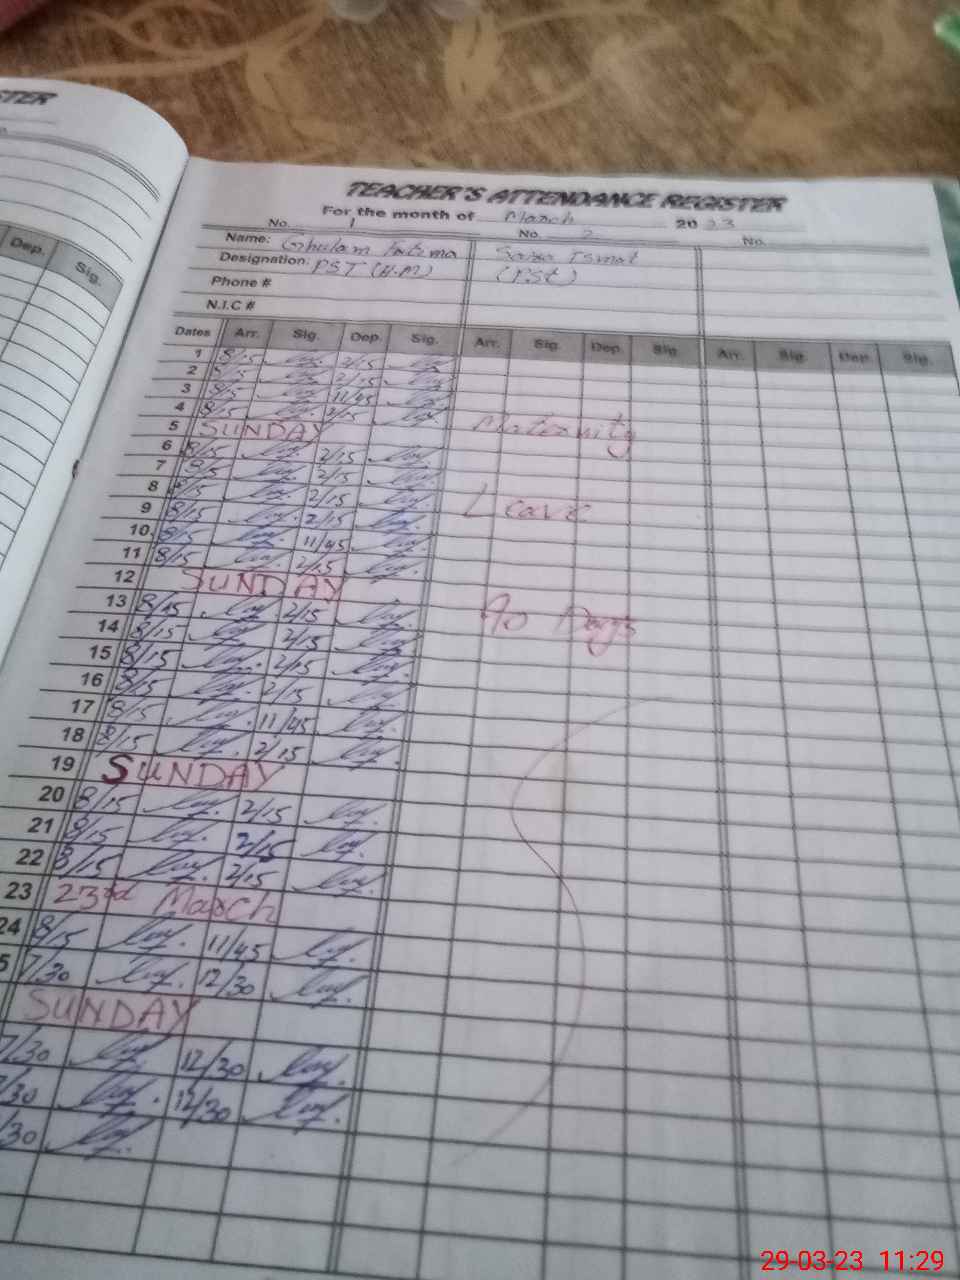 STER
Dep. Sig.
TEACHER'S ATTENDANCE REGISTER
For the month of March 2023
No. 1 No. 2 No.
Name: Ghulam Fatima
Designation: PST (H.M) (PST)
Phone #
N.I.C #
Dates Arr. Sig. Dep. Sig. Arr. Sig. Dep. Sig. Arr. Sig. Dep. Sig.
1 8/15 2/15
2 8/15 2/15
3 8/15 11/45
4 8/15 2/15
5 SUNDAY Maternity
6 8/15 2/15
7 8/15 2/15
8 8/15 2/15
9 8/15 2/15 Leave
10 8/15 11/45
11 8/15 2/15
12 SUNDAY
13 8/15 2/15 90 Days
14 8/15 2/15
15 8/15 2/15
16 8/15 2/15
17 8/15 11/45
18 8/15 2/15
19 SUNDAY
20 8/15 2/15
21 8/15 2/15
22 8/15 2/15
23 23rd March
24 8/15 11/45
5 7/30 12/30
SUNDAY
7/30 12/30
7/30 12/30
/30
29-03-23 11:29